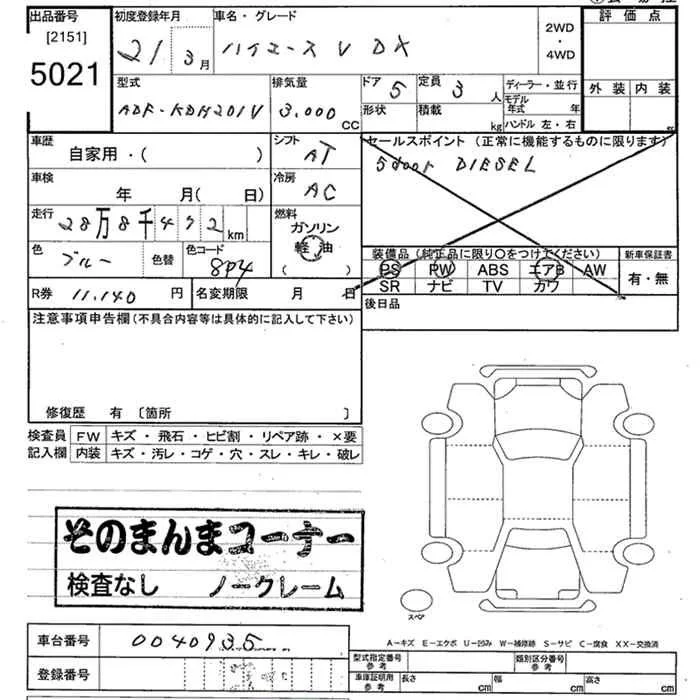 出品番号 初度登録年月 車名・グレード 評価点
[2151] 5021 21 3月 ハイエース V DX 2WD・4WD
型式 排気量 ドア 5 定員 3 人 ディーラー・並行 外装 内装
ADF-KDH201V 3.000 CC 形状 積載 kg モデル年式 年
ハンドル 左・右
車歴 シフト セールスポイント (正常に機能するものに限ります)
自家用・( ) AT 5door DIESEL
車検 冷房
年 月( 日) AC
走行 28万8千492km 燃料
ガソリン
軽油
( )
色 ブルー 色替 色コード 8P4
装備品 (純正品に限り〇をつけてください) 新車保証書
PS PW ABS エアB AW 有・無
SR ナビ TV カワ
R券 11.140 円 名変期限 月 日 後日品
注意事項申告欄(不具合内容等は具体的に記入して下さい)
修復歴 有 〔箇所 〕
検査員 FW キズ・飛石・ヒビ割・リペア跡・×要
記入欄 内装 キズ・汚レ・コゲ・穴・スレ・キレ・破レ
そのまんまコーナー
検査なし ノークレーム
スペア
A-キズ E-エクボ U-凹み W-補修跡 S-サビ C-腐食 XX-交換済
車台番号 0040935
登録番号
型式指定番号 参考 類別区分番号 参考
車庫証明用 参考 長さ cm 幅 cm 高さ cm